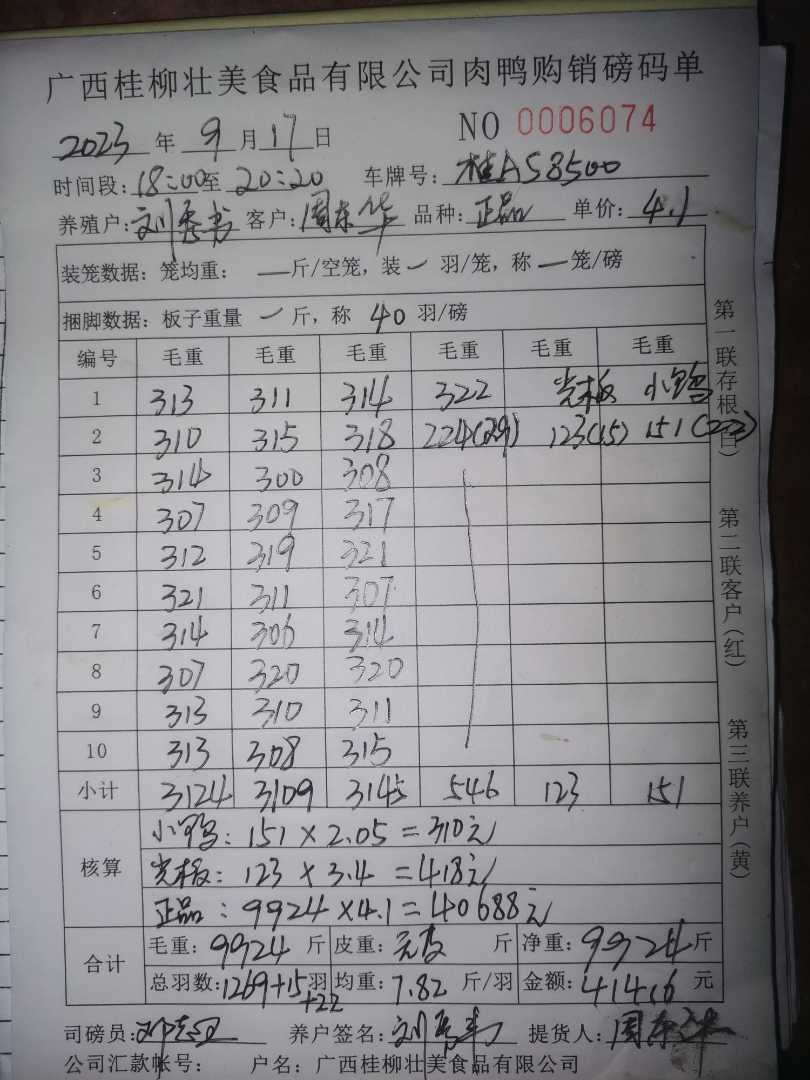 广西桂柳壮美食品有限公司肉鸭购销磅码单
2023年9月17日 NO 0006074
时间段:18:00至20:20 车牌号:桂AS8500
养殖户:刘秀书 客户:周东华 品种:正品 单价:4.1
装笼数据:笼均重:一斤/空笼,装一羽/笼,称一笼/磅
捆脚数据:板子重量一斤,称40羽/磅
编号 毛重 毛重 毛重 毛重 毛重 毛重
1 313 311 314 322 光板 小鸭
2 310 315 318 224(29) 123(15) 151(22)
3 314 300 308
4 307 309 317
5 312 319 321
6 321 311 307
7 314 306 314
8 307 320 320
9 313 310 311
10 313 308 315
小计 3124 3109 3145 546 123 151
核算
小鸭:151×2.05=310元
光板:123×3.4=418元
正品:9924×4.1=40688元
合计
毛重:9924斤 皮重:斤 净重:9924斤
总羽数:1269+15羽+22 均重:7.82斤/羽 金额:41416元
司磅员: 养户签名: 提货人:周东华
公司汇款帐号: 户名:广西桂柳壮美食品有限公司
第一联存根(白) 第二联客户(红) 第三联养户(黄)